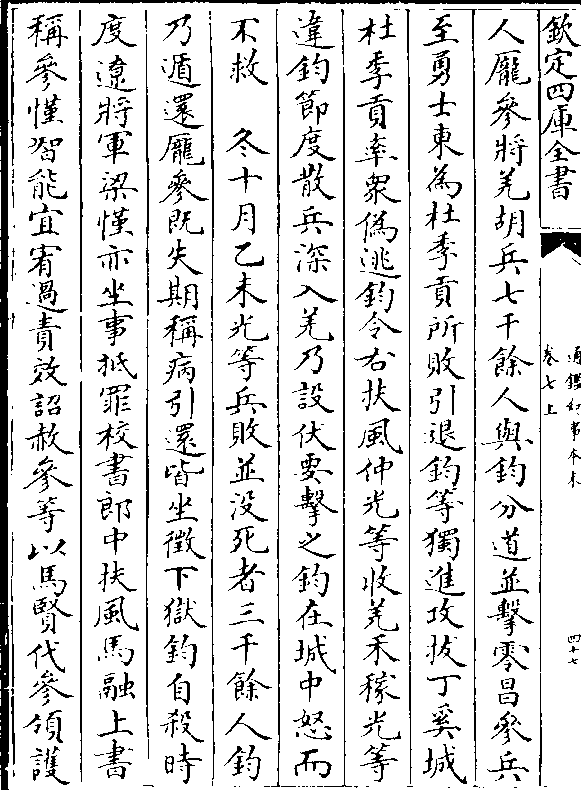 欽定四庫全書
通鑑紀事本末
卷七上
四十七
人龐參將羌胡兵七千餘人與鈞分道並擊零昌參兵
至勇士東為杜季貢所敗引退鈞等獨進攻拔丁奚城
杜季貢率衆偽逃鈞令右扶風仲光等收羌禾稼光等
違鈞節度散兵深入羌乃設伏要擊之鈞在城中怒而
不救　冬十月乙未光等兵敗並没死者三千餘人鈞
乃遁還龐參既失期稱病引還皆坐徵下獄鈞自殺時
度遼將軍梁慬亦坐事抵罪校書郎中扶風馬融上書
稱參慬智能宜宥過責效詔赦參等以馬賢代參領護